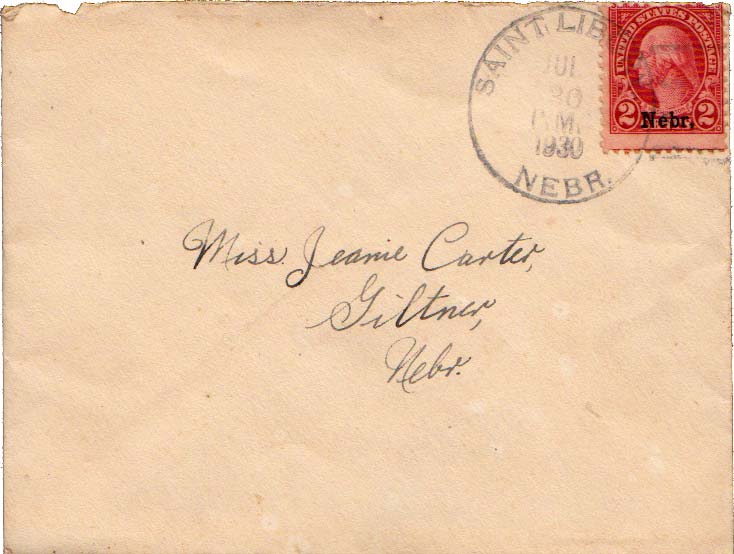 SAINT LIB
JUL
30
P.M.
1930
NEBR.
UNITED STATES POSTAGE
2 Nebr. 2
Miss Jeanie Carter,
Giltner,
Nebr.